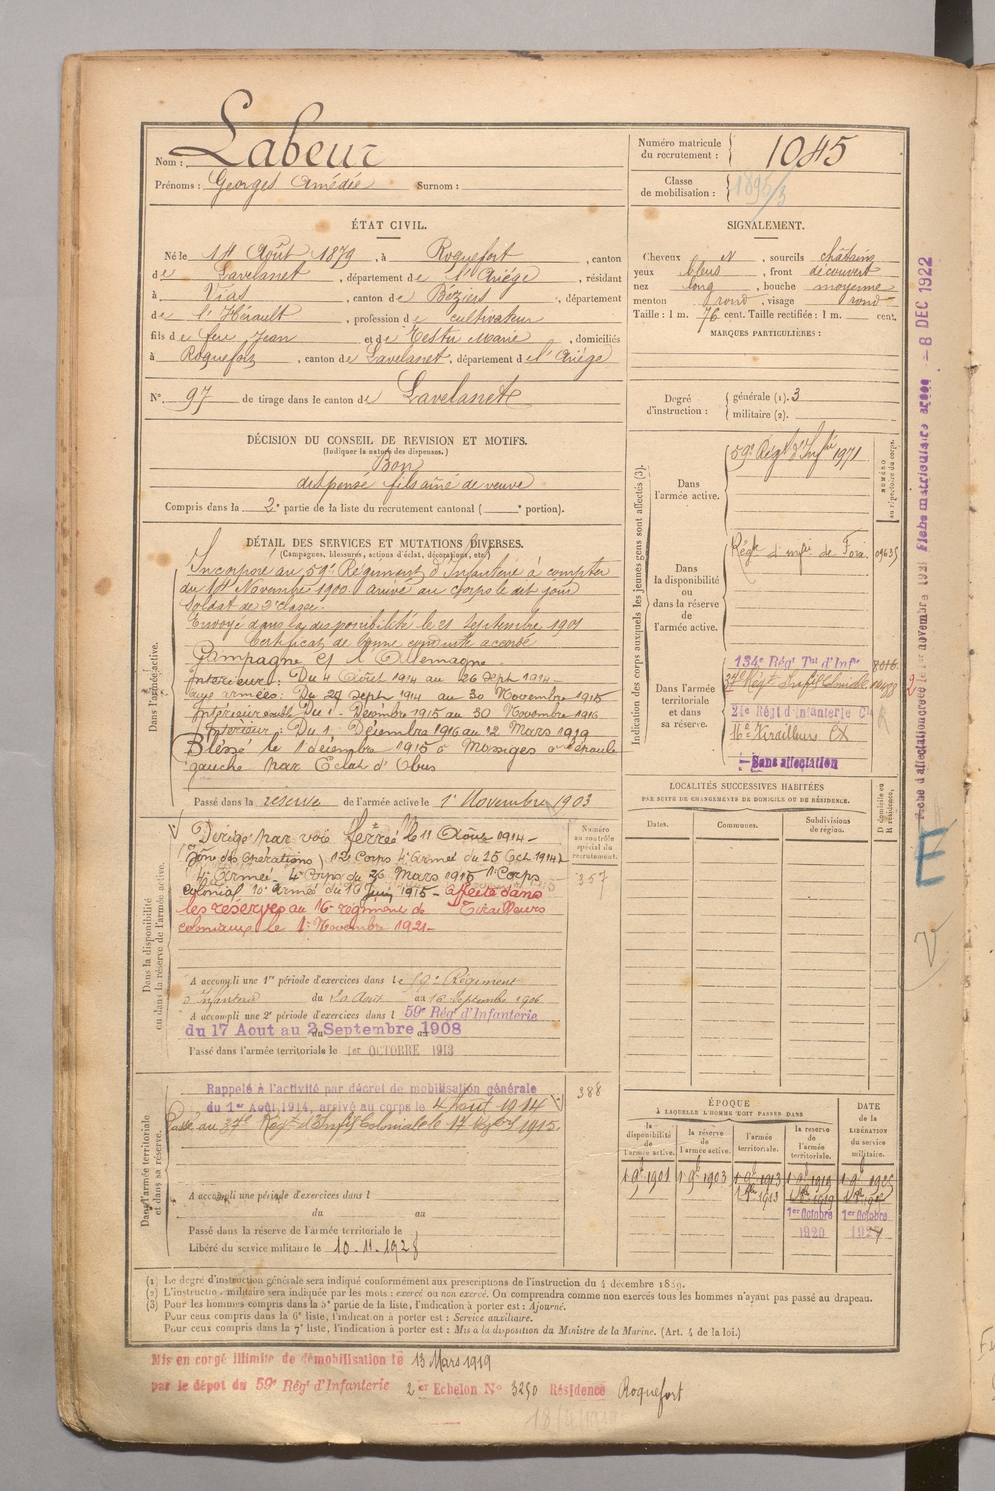 Nom : Labeur
Prénoms : Georges Amédée Surnom :
Numéro matricule du recrutement : 1045
Classe de mobilisation : 1895/3
ÉTAT CIVIL.
Né le 14 Août 1879, à Roquefort, canton
de Lavelanet, département de l'Ariége, résidant
à Vias, canton de Béziers, département
de l'Hérault, profession de cultivateur
fils de feu Jean et de Testu Marie, domiciliés
à Roquefort, canton de Lavelanet, département de l'Ariége
N° 97 de tirage dans le canton de Lavelanet
SIGNALEMENT.
Cheveux N, sourcils châtains
yeux bleus, front découvert
nez long, bouche moyenne
menton rond, visage rond
Taille : 1 m. 76 cent. Taille rectifiée : 1 m. cent.
MARQUES PARTICULIÈRES :
Degré d'instruction : générale (1). 3
militaire (2).
DÉCISION DU CONSEIL DE REVISION ET MOTIFS.
(Indiquer la nature des dispenses.)
Bon
dispensé fils aîné de veuve
Compris dans la 2e partie de la liste du recrutement cantonal ( e portion).
DÉTAIL DES SERVICES ET MUTATIONS DIVERSES.
(Campagnes, blessures, actions d'éclat, décorations, etc.)
Dans l'armée active.
Incorporé au 59e Régiment d'Infanterie à compter
du 14 Novembre 1900 arrivé au corps le dit jour
Soldat de 2e classe.
Envoyé dans la disponibilité le 21 Septembre 1901
Certificat de bonne conduite accordé
Campagne Ct l'Allemagne
Intérieur : Du 4 Août 1914 au 26 Sept 1914
aux armées : Du 27 Sept 1914 au 30 Novembre 1915
Intérieur Du 1 Décembre 1915 au 30 Novembre 1916
Intérieur : Du 1 Décembre 1916 au 12 Mars 1919
Blessé le 1 décembre 1915 à Massiges à l'épaule
gauche par Eclat d'Obus
Passé dans la réserve de l'armée active le 1er Novembre 1903
Dans la disponibilité ou dans la réserve de l'armée active.
Dirigé par voie ferrée le 11 Août 1914
(Zône des Opérations) 12 Corps 4e Armée du 25 Oct 1914
4e Armée 4e Corps du 26 Mars 1915 1er Corps
colonial 10e Armée du 16 Juin 1915 - affecté dans
les réserves au 16e régiment de Tirailleurs
coloniaux le 1er Novembre 1921
Numéro au contrôle spécial du recrutement.
357
A accompli une 1re période d'exercices dans le 59e Régiment
d'Infanterie du 20 Août au 16 Septembre 1906
A accompli une 2e période d'exercices dans l 59e Rég' d'Infanterie
du 17 Aout au 2 Septembre 1908
Passé dans l'armée territoriale le 1er OCTOBRE 1913
Dans l'armée territoriale et dans sa réserve.
Rappelé à l'activité par décret de mobilisation générale
du 1er Août 1914, arrivé au corps le 4 Août 1914
Passé au 37e Régt d'Infrie Coloniale le 17 1915
388
A accompli une période d'exercices dans l
du au
Passé dans la réserve de l'armée territoriale le
Libéré du service militaire le 10.11.1928
Indication des corps auxquels les jeunes gens sont affectés (3).
NUMÉRO au répertoire du corps.
Dans l'armée active.
59e Régt d'Infrie 1971
Dans la disponibilité ou dans la réserve de l'armée active.
Régt d'infie de Foix 09635
Dans l'armée territoriale et dans sa réserve.
134e Rég' Tal d'Infie
37e Régt Infie Coloniale
21e Rég' d'Infanterie Cle
16e Tirailleurs CX
Sans affectation
LOCALITÉS SUCCESSIVES HABITÉES
PAR SUITE DE CHANGEMENTS DE DOMICILE OU DE RÉSIDENCE.
Dates. Communes. Subdivisions de région. D domicile ou R résidence.
ÉPOQUE
A LAQUELLE L'HOMME DOIT PASSER DANS
DATE de la LIBÉRATION du service militaire.
la disponibilité de l'armée active. la réserve de l'armée active. l'armée territoriale. la réserve de l'armée territoriale.
1 9b 1901 1 9b 1903 1 9b 1913 1 9b 1919 1 9b 1925
1er Octobre 1er Octobre
1920 1927
Fiche d'affectation créée le 1er novembre 1921 Fiche matriculaire créée - 8 DEC 1922
E
V
(1) Le degré d'instruction générale sera indiqué conformément aux prescriptions de l'instruction du 4 décembre 1889.
(2) L'instruction militaire sera indiquée par les mots : exercé ou non exercé. On comprendra comme non exercés tous les hommes n'ayant pas passé au drapeau.
(3) Pour les hommes compris dans la 5e partie de la liste, l'indication à porter est : Ajourné.
Pour ceux compris dans la 6e liste, l'indication à porter est : Service auxiliaire.
Pour ceux compris dans la 7e liste, l'indication à porter est : Mis à la disposition du Ministre de la Marine. (Art. 4 de la loi.)
Mis en congé illimité de démobilisation le 13 Mars 1919
par le dépôt du 59e Rég' d'Infanterie 2er Echelon N° 3250 Résidence Roquefort